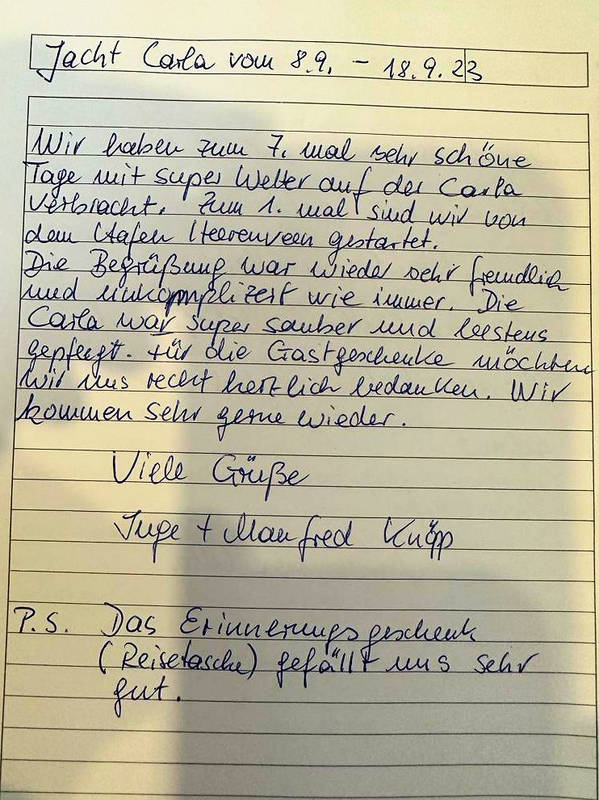 Jacht Carla vom 8.9. – 18.9.23
Wir haben zum 7. mal sehr schöne
Tage mit super Wetter auf der Carla
verbracht. Zum 1. mal sind wir von
dem Hafen Heerenveen gestartet.
Die Begrüßung war wieder sehr freundlich
und unkomplizert wie immer. Die
Carla war super sauber und bestens
gepfegt. Für die Gastgeschenke möchten
wir uns recht herzlich bedanken. Wir
kommen sehr gerne wieder.
Viele Grüße
Inge + Manfred Knöpp
P.S. Das Erinnerungsgeschenk
(Reisetasche) gefällt uns sehr
gut.